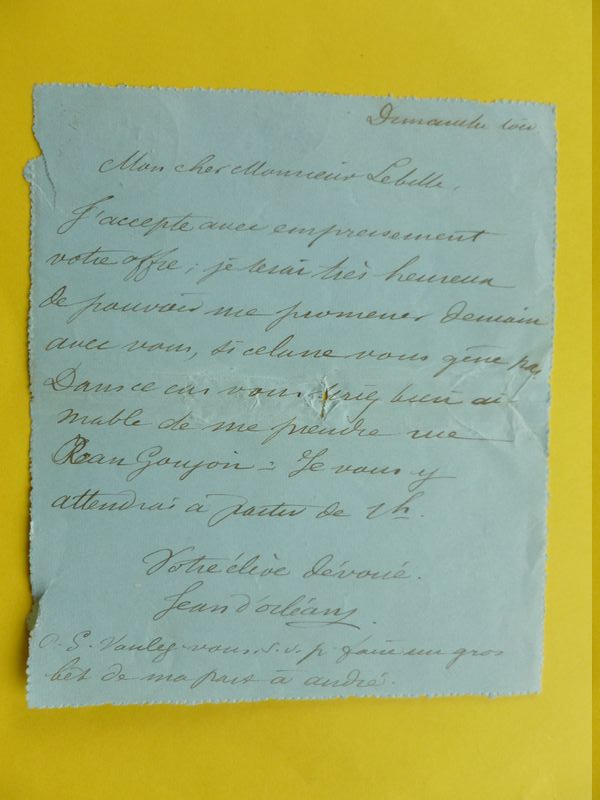 Dimanche soir
Mon cher Monsieur Lebelle,
J'accepte avec empressement
votre offre ; je serai très heureux
de pouvoir me promener demain
avec vous, si cela ne vous gêne pas
Dans ce cas vous seriez bien ai-
mable de me prendre rue
Jean Goujon = Je vous y
attendrai à partir de 1h.
Votre élève dévoué.
Jean d'orléans
P. S. Voulez-vous s. v. p. faire un gros
bet de ma part à andré.